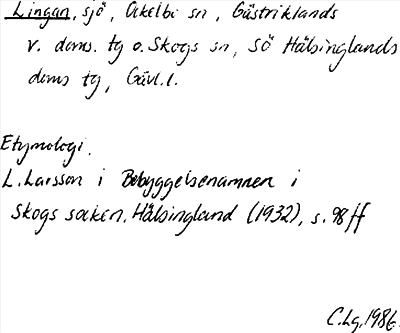 Lingan, sjö, Ockelbo sn, Gästriklands
v. doms. tg o. Skogs sn, Sö Hälsinglands
doms tg, Gävl.l.
Etymologi.
L. Larsson i Bebyggelsenamnen i
Skogs socken. Hälsingland (1932), s. 98 ff
C.Lg. 1986.